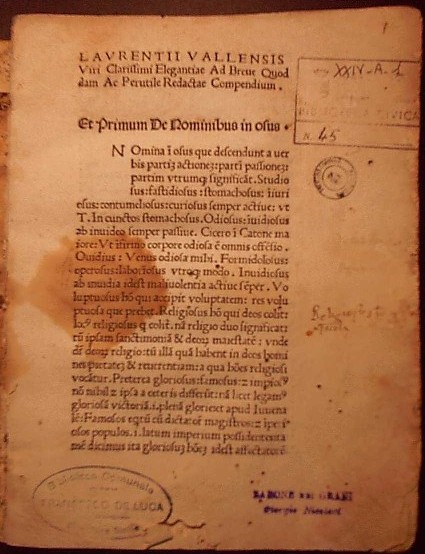 LAVRENTII VALLENSIS
Viri Clarissimi Elegantiae Ad Breue Quod
dam Ac Perutile Redactae Compendium.
XXIV-A-1
BIBLIOTECA CIVICA
N. 45
Et Primum De Nominibus in osus.
NOmina ī osus que descendunt a uer
bis partiꝫ actioneꝫ: partī passioneꝫ:
partim vtrumqꝫ significāt. Studio
sus: fastidiosus: stomachosus: īiuri
osus: contumeliosus: curiosus semper actiue: vt
T. In cunctos stomachosus. Odiosus: īuidiosus
ab inuideo semper passiue. Cicero ī Catone ma
iore: Vt īfirmo corpore odiosa ē omnis offēsio.
Ouidius: Venus odiosa mihi. Formidolosus:
operosus: laboriosus vtroqꝫ modo. Inuidiosus
ab inuidia idest maliuolentia actiue sēper. Vo
luptuosus hō qui accipit voluptatem: res volu
ptuosa que prebet. Religiosus hō qui deos colit:
locꝰ religiosus q̄ colit. nā religio duo significat:
tū ipsam sanctimoniā & deoꝝ maiestatē: vnde
dr̄ deoꝝ religio: tū illā quā habent in deos homi
nes pietatē & reuerentiam: a qua hōies religiosi
vocātur. Preterea gloriosus: famosus: ꝛ impiosꝰ
nō nihil ꝛ ipsa a ceteris differūt: nā licet legamꝰ
gloriosā victoriā .i. plenā glorie: vt apud Iuuena
lē: Famosos equū cū dictatoē magistros: ꝛ īperi
osos populos .i. latum imperium possidentes: ta
mē dicimus ita gloriosuꝫ hōieꝫ idest affectatorē
Biblioteca Comunale
FRANCESCO DE LUCA
BARONE DEI GRANI
Giorgio Nicolosi